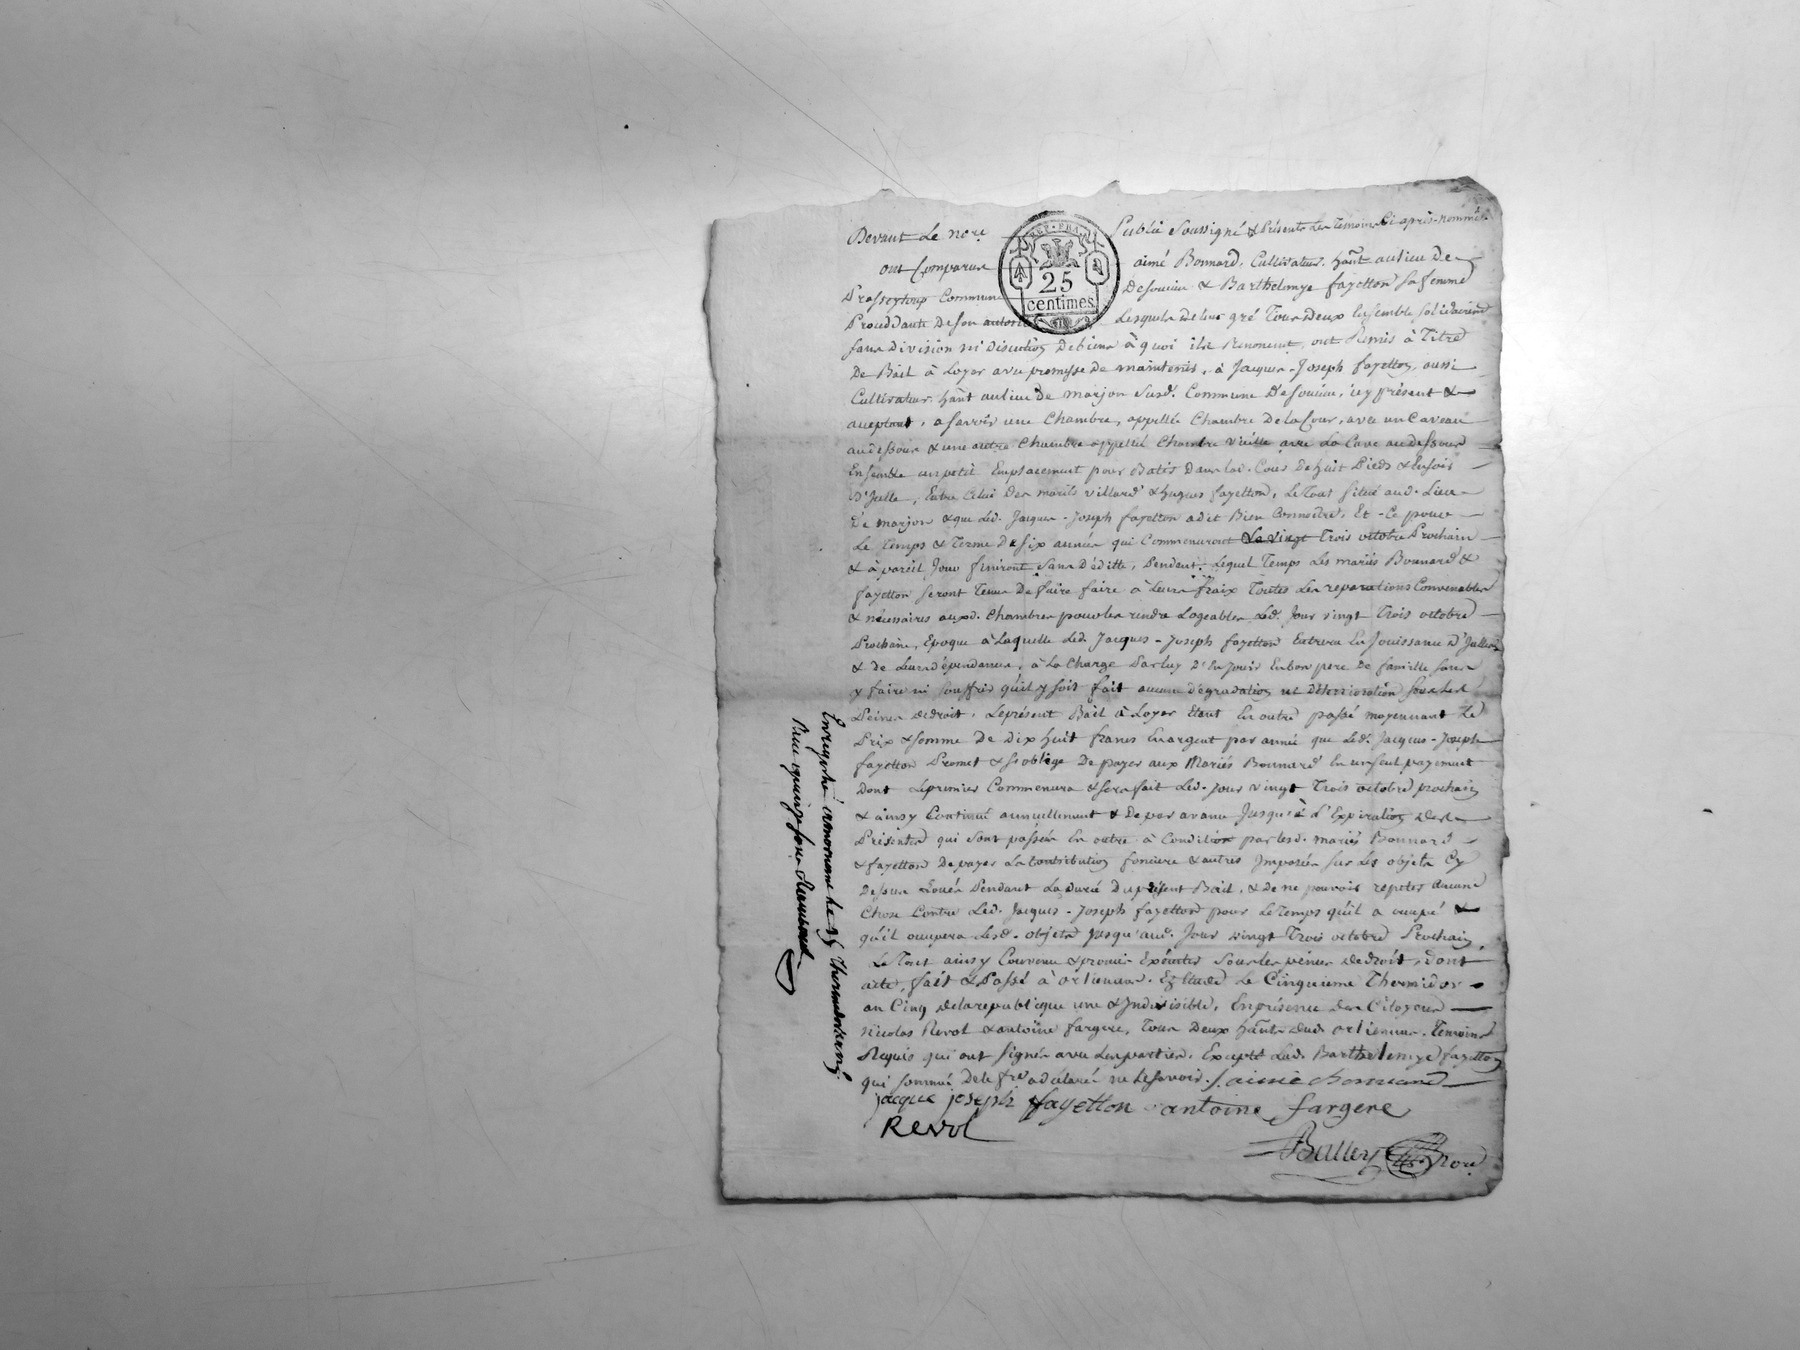 Devant Le nore Publié Soussigné & Présents Les Temoins Ci après-nommés
REP. FRA.
25
centimes
ont Comparus aimé Bonnard, Cultivateur hant au lieu De
Commune De soucieu & Barthelemye fayetton Sa femme
Procédante De son autorité Lesquels de leur gré Tous Deux Ensemble solidairem
sans Division ni Discution De biens à quoi ils Renoncent, ont Remis à Titre
De Bail à Loyer avec promesse De maintenir, à Jacques-Joseph fayetton, aussi
Cultivateur hant au lieu De marjon Susd. Commune De soucieu, icy présent &
aceptant, a savoir une Chambre, appellée Chambre De la Cour, avec un Caveau
au dessous & une autre Chambre appellée Chambre Vieille avec La Cave au dessous
Ensemble un petit Emplacement pour Batir Dans lad. Cour De huit Pieds &
D'Icelle, Entre Celui Des mariés Villard & hugues fayetton, Le Tout Situé aud. Lieu
De marjon & que Led. Jacques-Joseph fayetton a dit Bien Connoitre, Et Ce pour
Le Temps & Terme De Six années qui Commenceront Le vingt Trois octobre Prochain
& à pareil Jour finiront sans D'editte, Pendent Lequel Temps Les mariés Bonnard &
fayetton Seront Tenus De faire faire à Leurs fraix Toutes Les reparations Convenables
& nécessaires auxd. Chambres pour les rendre Logeables Led. Jour vingt Trois octobre
Prochain, Epoque à Laquelle Led. Jacques-Joseph fayetton Entrera En Jouissance D'Icelles
& de Leurs dépendances, à La Charge Par luy D'En Jouir En bon pere De famille sans
y faire ni souffrir qu'il y soit fait aucune dégradation ni Déterioration sous Les
Peines de droit. Le présent Bail à Loyer Etant En outre passé moyennant Le
Prix & somme De Dix huit francs En argent par année que Led. Jacques-Joseph
fayetton Promet & s'oblige De payer aux Mariés Bonnard En un seul payement
Dont Le premier Commencera & sera fait Led. Jour vingt Trois octobre prochain
& ainsy Continué annuellement & De par avance Jusqu'à L'Expiration Des
Présentes qui sont passées En outre à Condition par lesd. mariés Bonnard
& fayetton De payer La Contribution fonciere & autres Imposées sur Les objets Cy
Dessus Loués Pendant La durée Du présent Bail, & De ne pouvoir repeter Aucune
Chose Contre Led. Jacques-Joseph fayetton pour Le Temps qu'il a occupé &
qu'il occupera Lesd. objets Jusqu'aud. Jour vingt Trois octobre Prochain,
Le Tout ainsy Convenu & promis Exécuter Sous les peines de droit, Dont
acte, fait & Passé à orlienas, Etude Le Cinquieme Thermidor
an Cinq de la republicque une & Indivisible, En présence des Citoyens
Nicolas Revol & antoine fargere, Tous Deux hants aud. orlienas, Temoins
Requis qui ont Signés avec Les parties, Excepté Lad. Barthelemye fayetton
qui sommée De le fre a déclaré ne Le savoir. aimé bonnard
jacque joseph fayetton antoine fargere
Revol
Bullery nore
Enregistré à mornant Le Thermidor an 5
Reçu